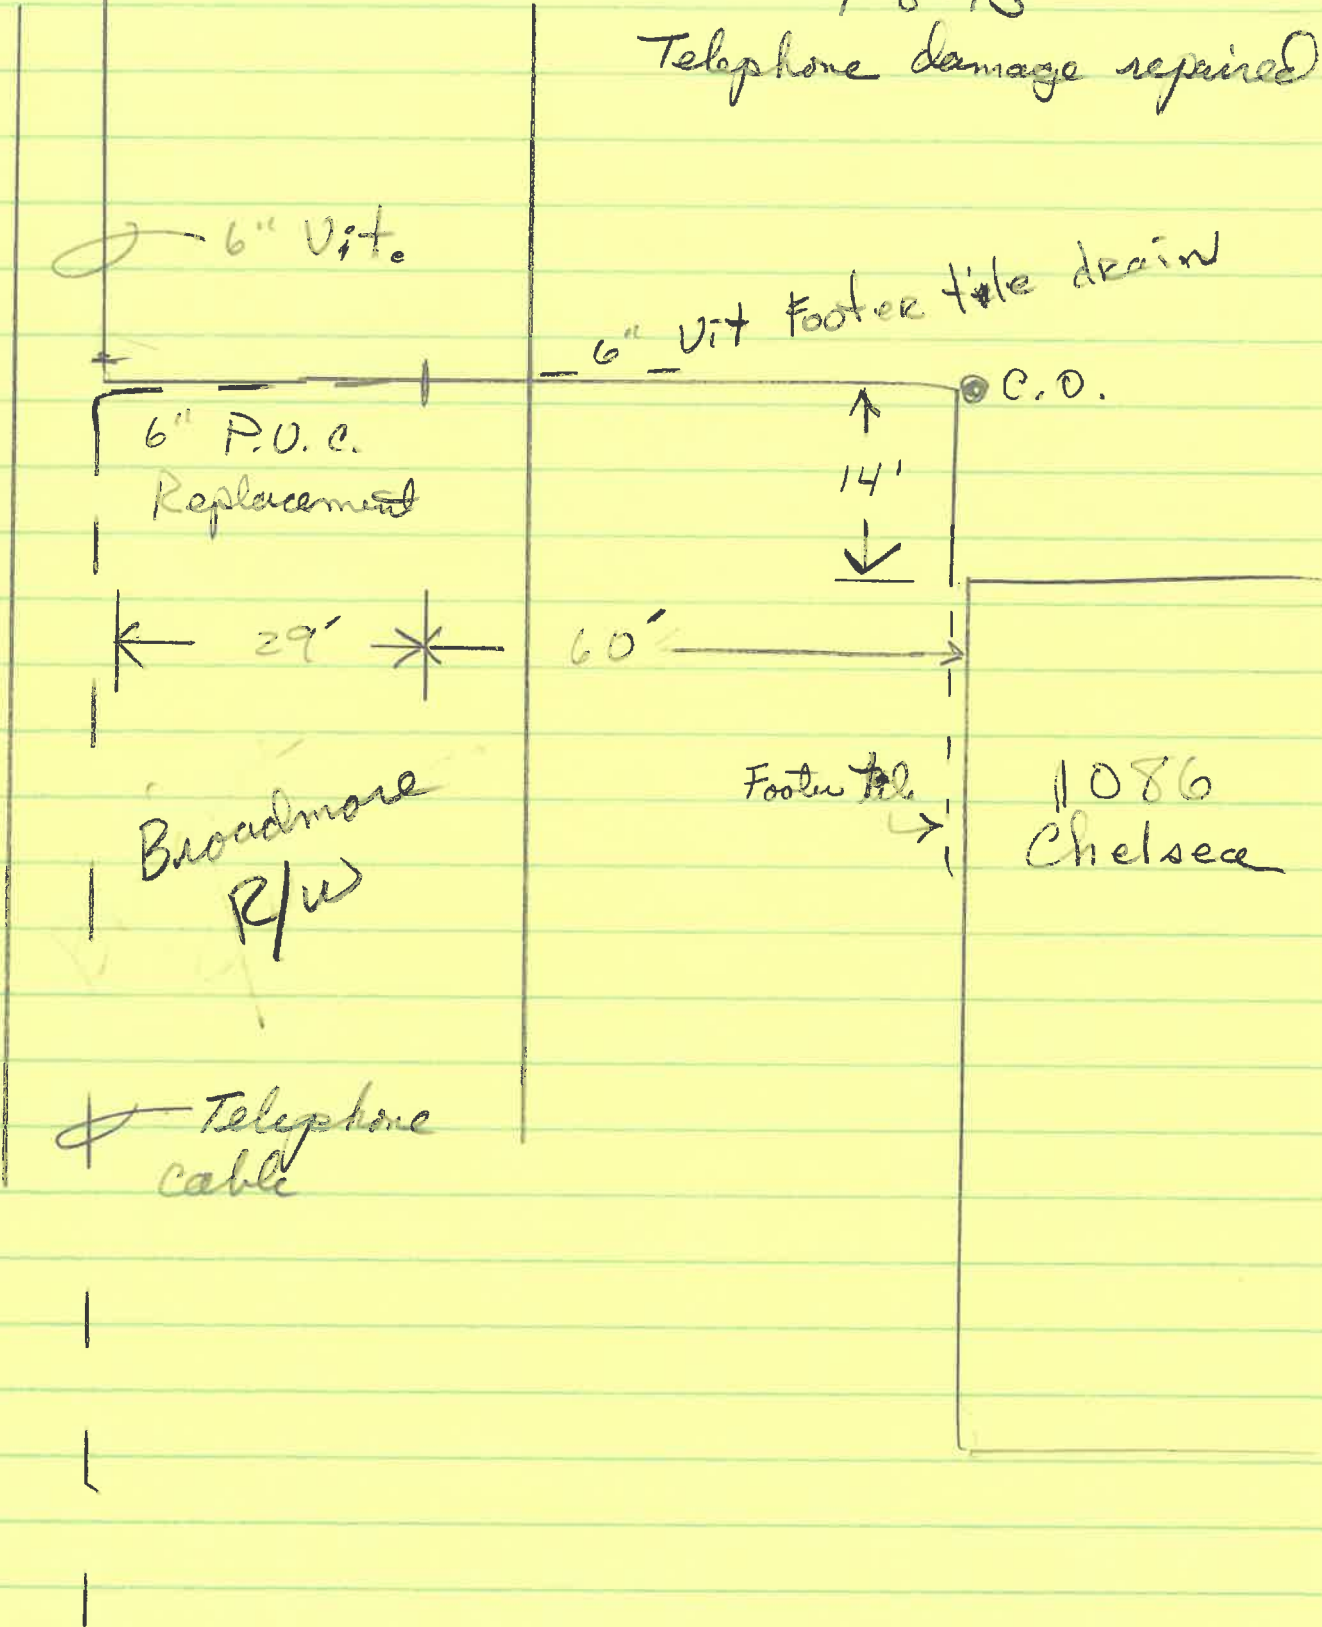 Telephone damage repaired
6" Vit.
6" Vit Footer tile drain
C.O.
6" P.V.C.
Replacement
14'
29'
60'
Footer tile
1086
Chelsea
Broadmore
R/W
Telephone
cable